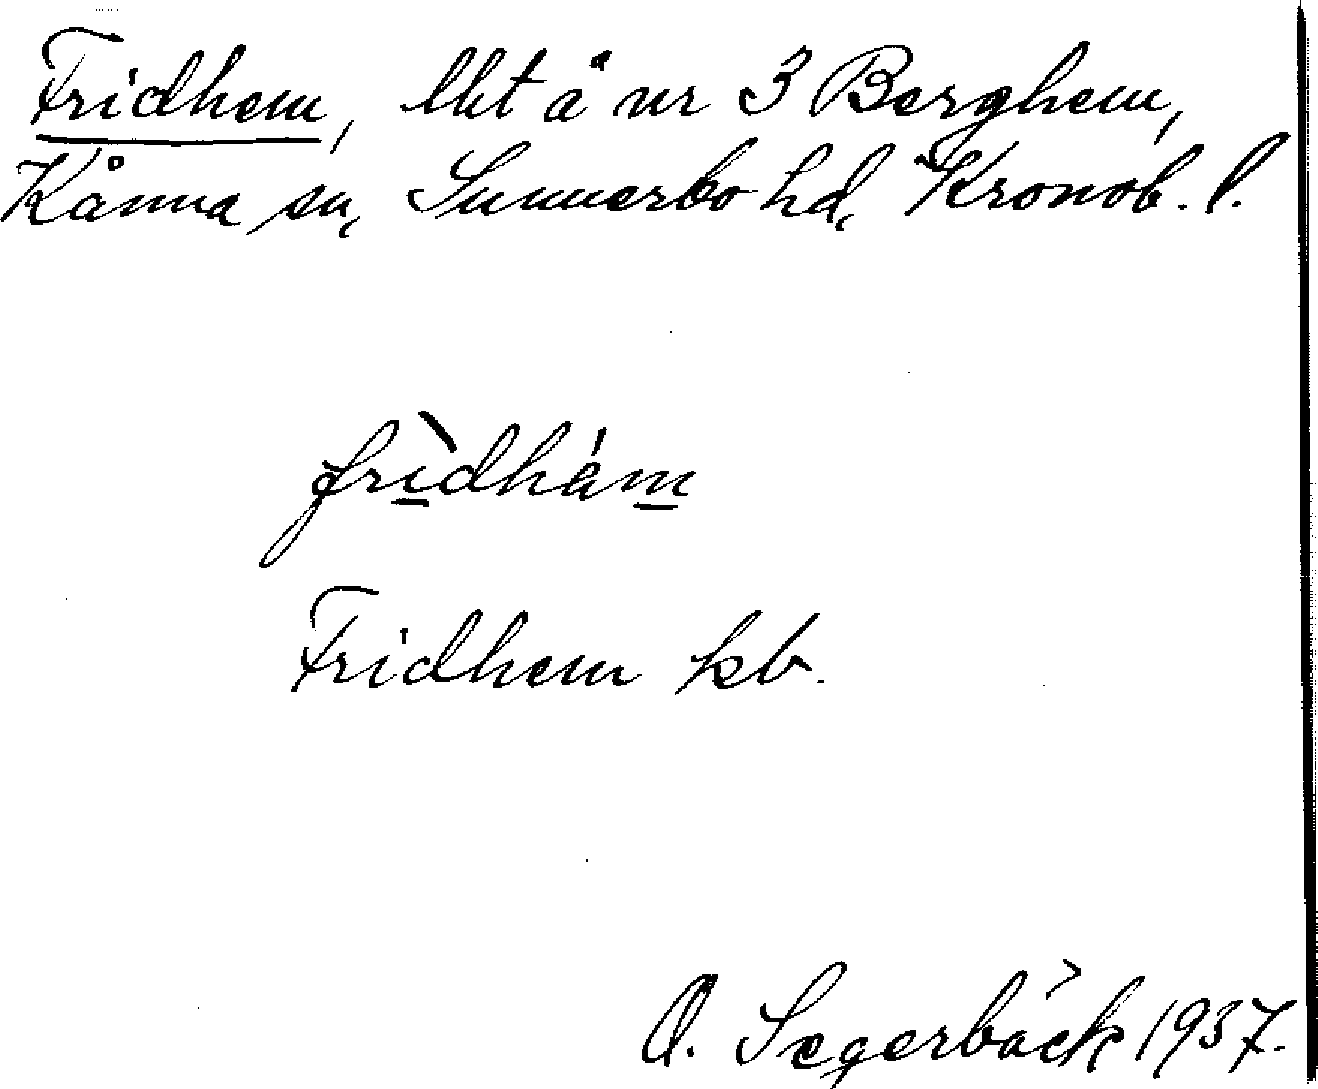 Fridhem, lht å nr 3 Berghem,
Kånna sn, Sunnerbo hd, Kronob. l.
fri̲dhàm̲
Fridhem kb.
O. Segerbäck 1937.